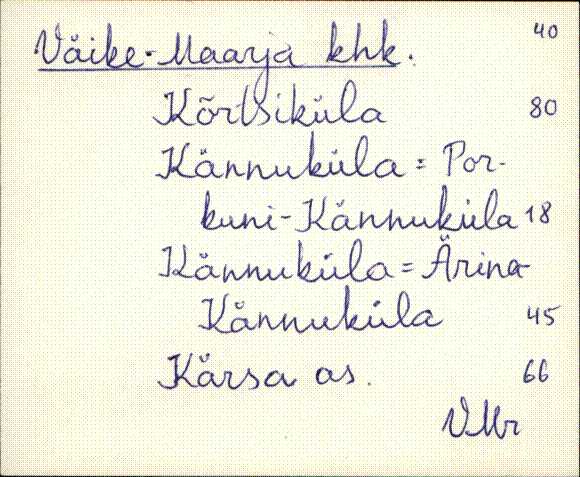 40
Väike-Maarja khk.
Kõrtsiküla 80
Kännuküla = Por-
kuni-Kännuküla 18
Kännuküla = Ärina-
Kännuküla 45
Kärsa as. 66
VMr